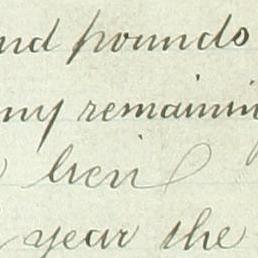 nd pounds
my remaining
year the